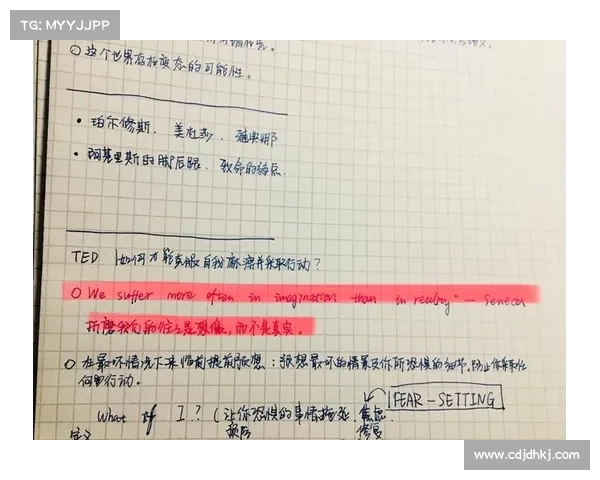 TG: MYYJJPP
○ 这个世界存在变态的可能性。
• 珀尔修斯. 美杜莎. 雅典娜
• 阿基里斯的脚后跟. 致命的弱点.
TED 如何才能克服自我麻痹并采取行动?
○ We suffer more often in imagination than in reality" — Seneca
折磨我们的往往是想像,而不是真实。
○ 在最坏情况下来临前提前预想:预想最坏的情景及你所恐惧的细节,防止你采取任
何的行动。
FEAR-SETTING
What if I? (让你恐惧的事情
定义 预防 修复
www.cdjdhkj.com